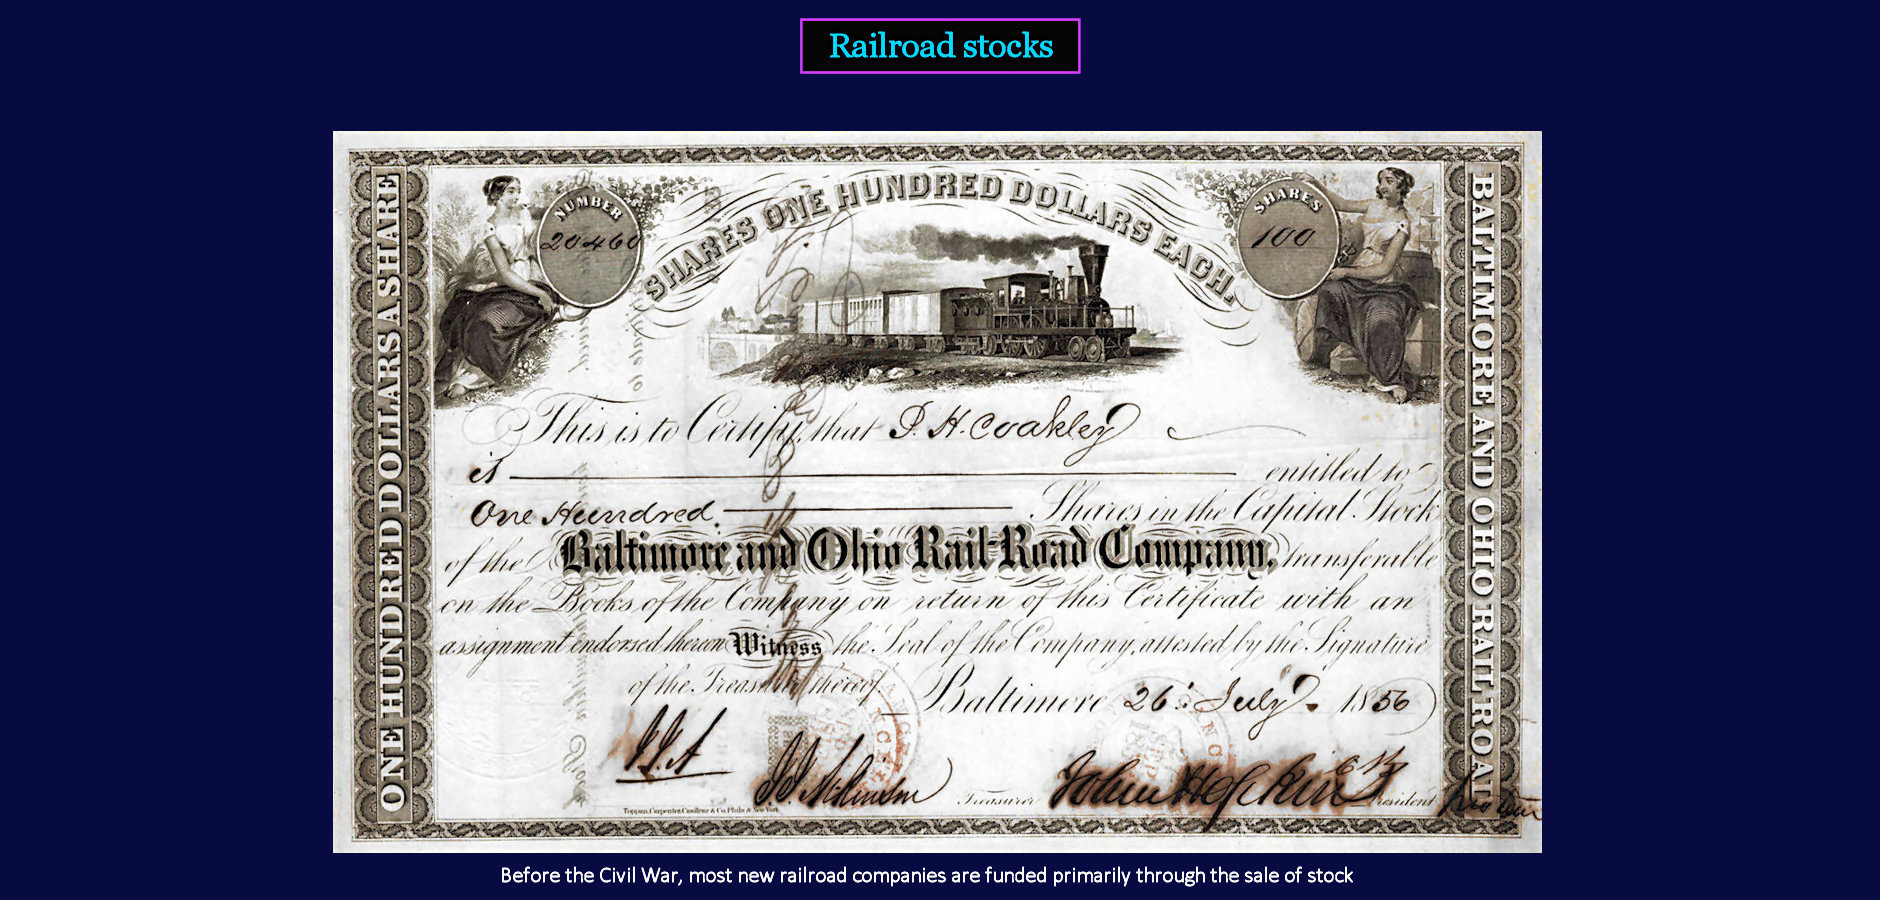 Railroad stocks
ONE HUNDRED DOLLARS A SHARE
NUMBER
20460
SHARES ONE HUNDRED DOLLARS EACH.
SHARES
100
BALTIMORE AND OHIO RAIL ROAD
This is to Certify, that J. H. Coakley
is entitled to
One Hundred. Shares in the Capital Stock
of the Baltimore and Ohio Rail-Road Company, transferable
on the Books of the Company on return of this Certificate with an
assignment endorsed thereon Witness the Seal of the Company, attested by the Signature
of the Treasurer thereof. Baltimore 26 July. 1856
J.J.A
Treasurer
President
Toppan, Carpenter, Casilear & Co. Phila & New York
Before the Civil War, most new railroad companies are funded primarily through the sale of stock